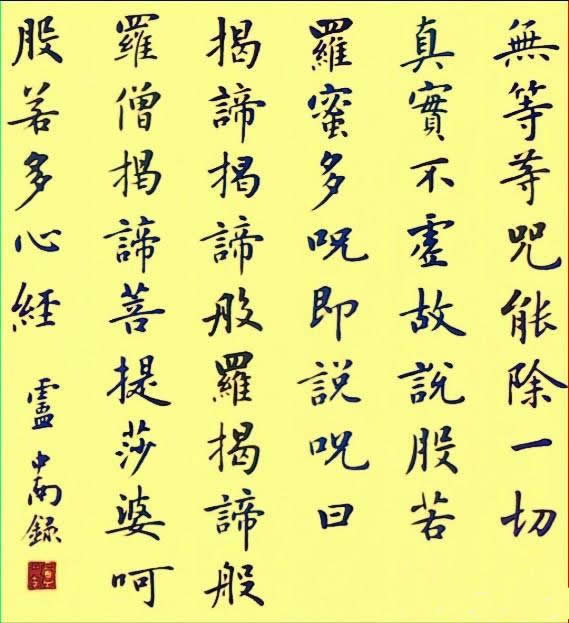 無等等咒能除一切
真實不虛故說股若
羅蜜多呪即說呪曰
揭諦揭諦般羅揭諦般
羅僧揭諦菩提莎婆呵
股若多心經
盧中南錄